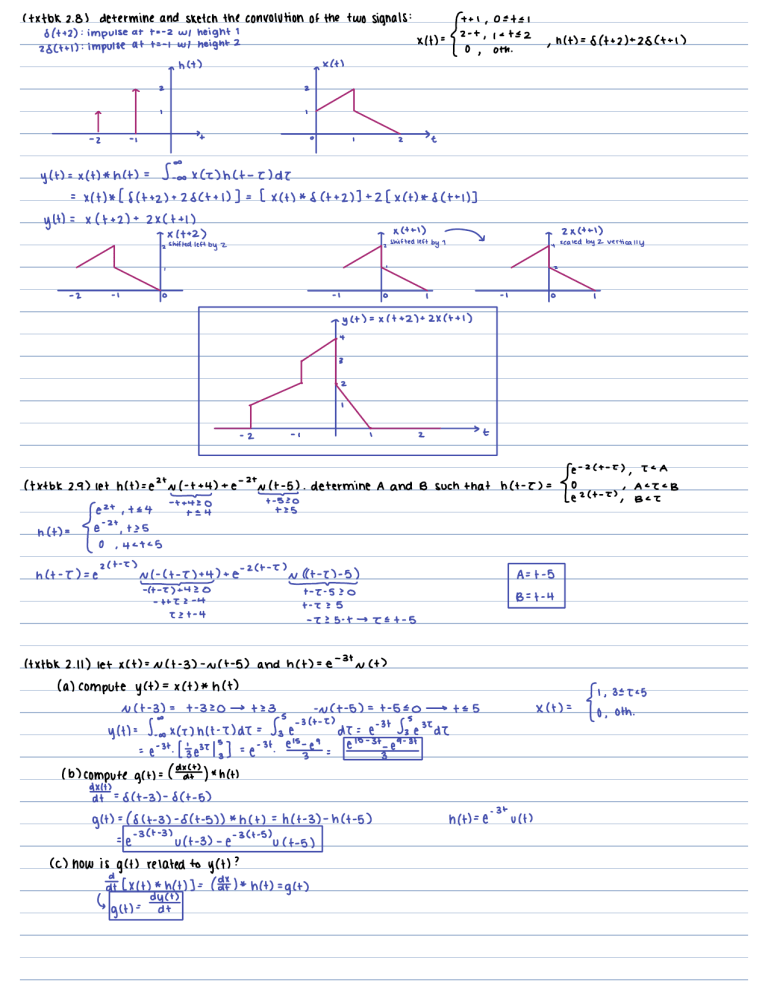 (txtbk 2.8) determine and sketch the convolution of the two signals: x(t)= { t+1, 0≤t≤1
2-t, 1<t≤2
0, oth. , h(t)= δ(t+2)+2δ(t+1)
δ(t+2): impulse at t=-2 w/ height 1
2δ(t+1): impulse at t=-1 w/ height 2
h(t)
2
1
-2 -1 t
x(t)
2
1
0 1 2 t
y(t)= x(t)*h(t)= ∫_-∞^∞ x(τ)h(t-τ)dτ
= x(t)*[δ(t+2)+2δ(t+1)] = [x(t)*δ(t+2)]+2[x(t)*δ(t+1)]
y(t)= x(t+2)+2x(t+1)
x(t+2)
2 shifted left by 2
1
-2 -1 0
x(t+1)
2 shifted left by 1
1
-1 0 1
2x(t+1)
4 scaled by 2 vertically
2
-1 0 1
y(t)=x(t+2)+2x(t+1)
4
3
2
1
-2 -1 1 2 t
(txtbk 2.9) let h(t)=e^2t u(-t+4)+e^-2t u(t-5). determine A and B such that h(t-τ)= { e^-2(t-τ), τ<A
0, A<τ<B
e^2(t-τ), B<τ
-t+4≥0 t-5≥0
t≤4 t≥5
h(t)= { e^2t, t≤4
e^-2t, t≥5
0, 4<t<5
h(t-τ)=e^2(t-τ) u(-(t-τ)+4)+e^-2(t-τ) u((t-τ)-5)
-(t-τ)+4≥0 t-τ-5≥0
-t+τ≥-4 t-τ≥5
τ≥t-4 -τ≥5-t → τ≤t-5
A=t-5
B=t-4
(txtbk 2.11) let x(t)=u(t-3)-u(t-5) and h(t)=e^-3t u(t)
(a) compute y(t)=x(t)*h(t)
u(t-3)= t-3≥0 → t≥3 -u(t-5)= t-5≤0 → t≤5 x(t)= { 1, 3≤τ<5
0, oth.
y(t)= ∫_-∞^∞ x(τ)h(t-τ)dτ = ∫_3^5 e^-3(t-τ) dτ = e^-3t ∫_3^5 e^3τ dτ
= e^-3t · [1/3 e^3τ |_3^5] = e^-3t · (e^15-e^9)/3 = (e^15-3t - e^9-3t)/3
(b) compute g(t)= (dx(t)/dt)*h(t)
dx(t)/dt = δ(t-3)-δ(t-5)
g(t)= (δ(t-3)-δ(t-5))*h(t)= h(t-3)-h(t-5) h(t)=e^-3t u(t)
= e^-3(t-3) u(t-3)-e^-3(t-5) u(t-5)
(c) how is g(t) related to y(t)?
d/dt [x(t)*h(t)]= (dx/dt)*h(t)=g(t)
↳ g(t)= dy(t)/dt